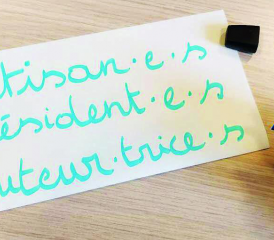 tisan·e·s
ésident·e·s
uteur·trice·s